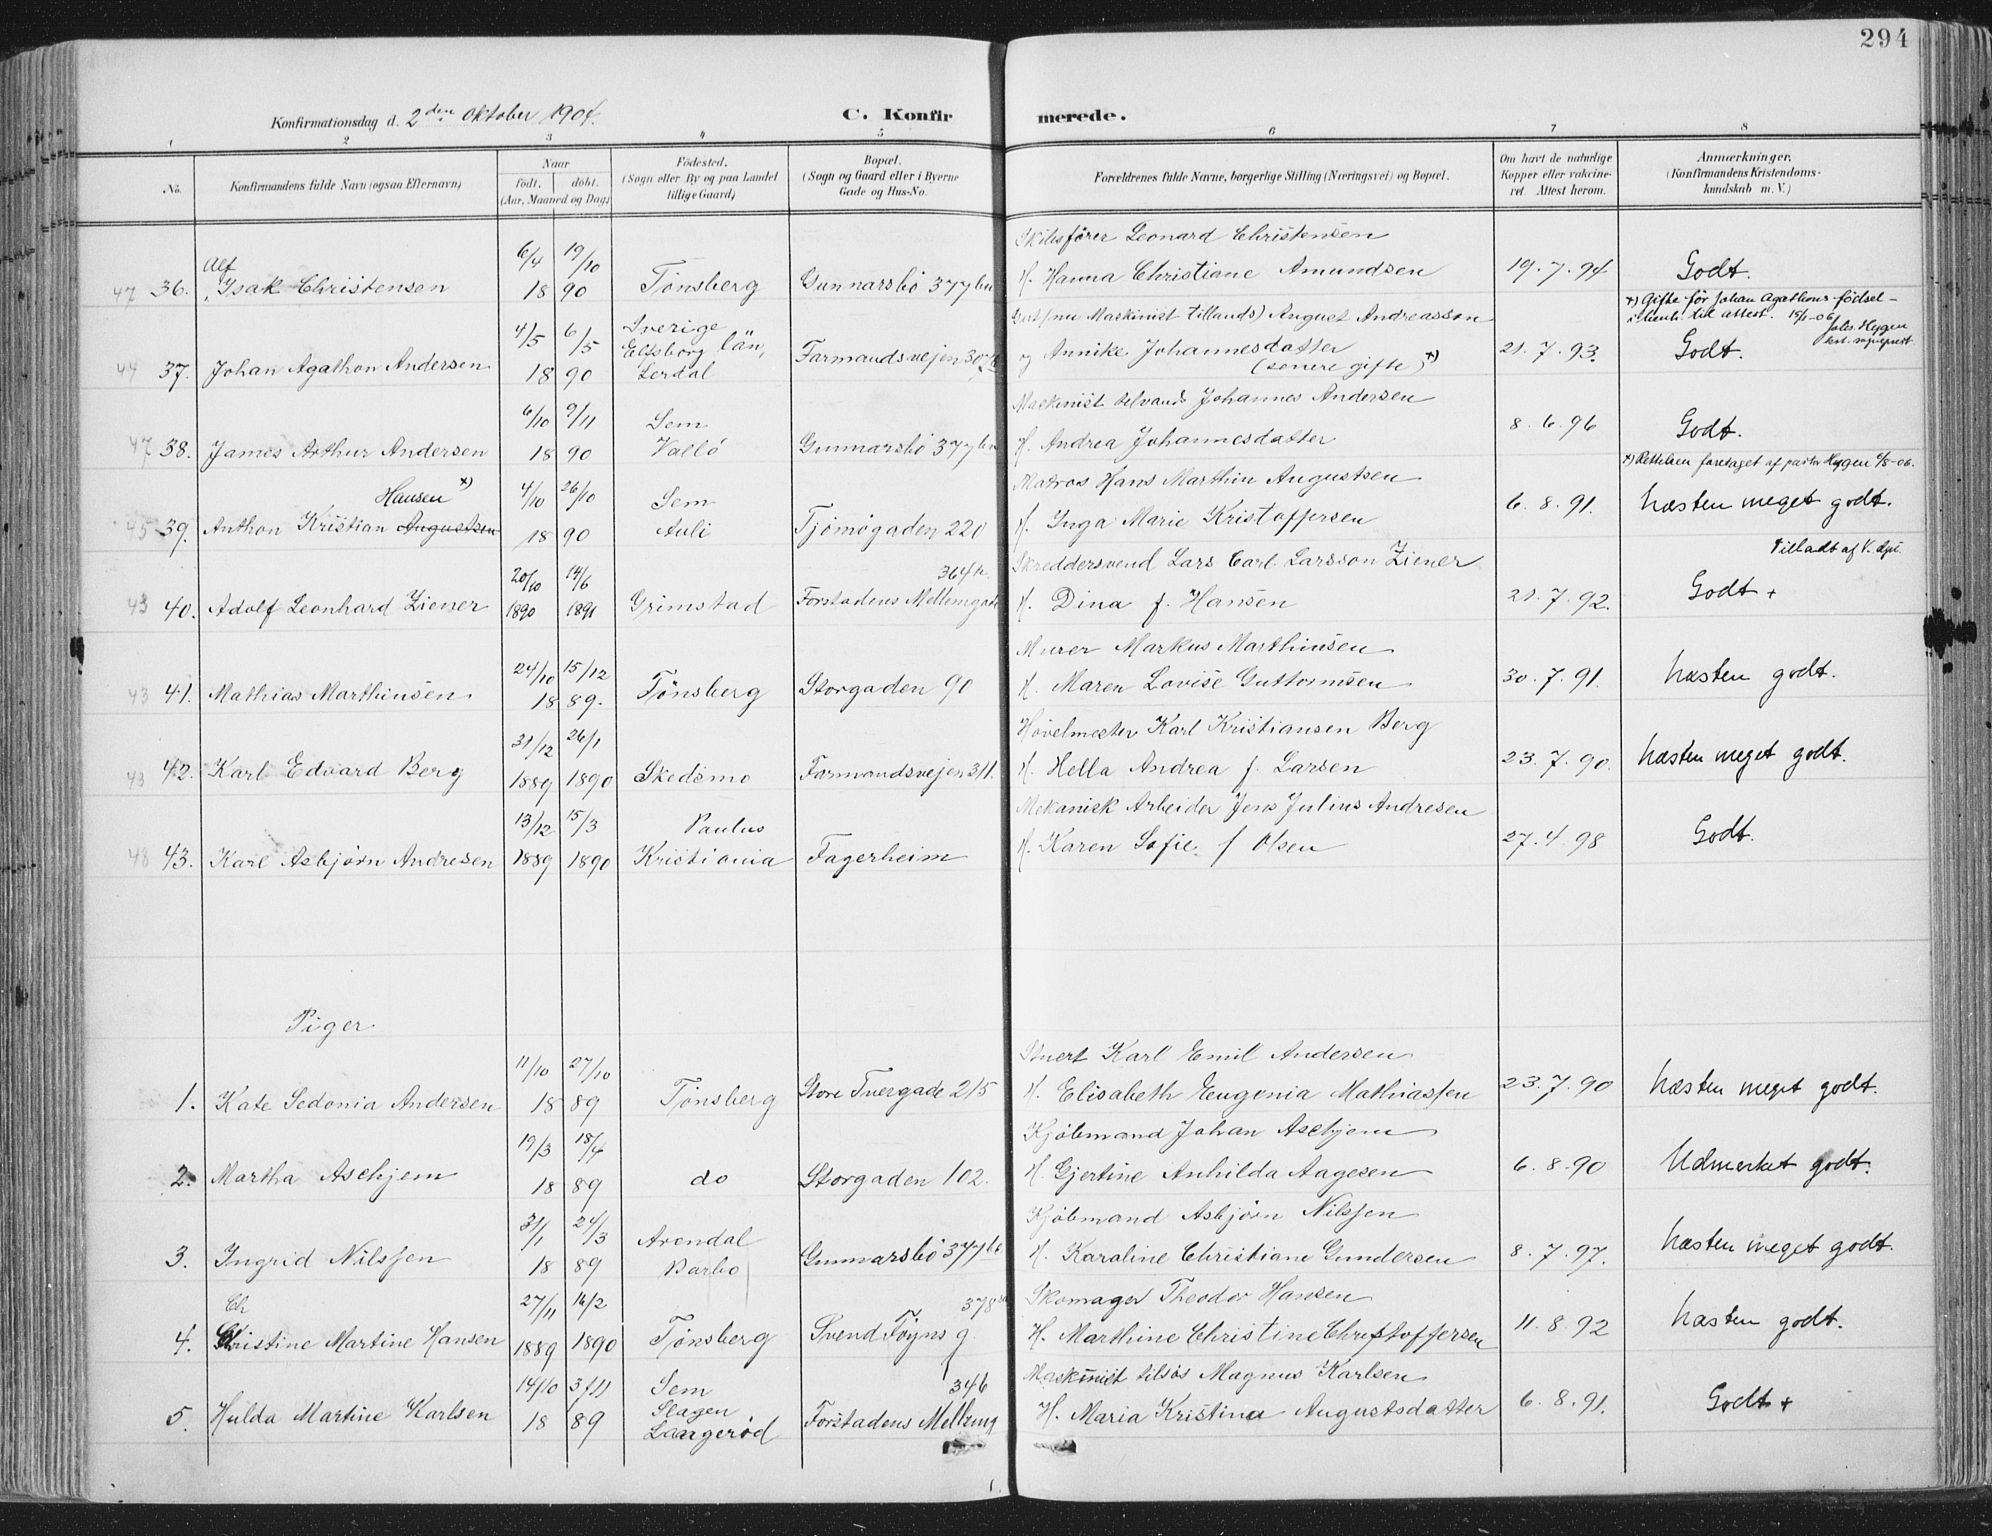 294
Konfirmationsdag d. 2den Oktober 1904.
C. Konfirmerede.
1 2 3 4 5 6 7 8
No.
Konfirmandens fulde Navn (ogsaa Efternavn)
Naar
født. døbt.
(Aar, Maaned og Dag)
Fødested.
(Sogn eller By og paa Landet
tillige Gaard)
Bopæl.
(Sogn og Gaard eller i Byerne
Gade og Hus-No.
Forældrenes fulde Navne, borgerlige Stilling (Næringsvei) og Bopæl.
Om havt de naturlige
Kopper eller vakcine-
ret Attest herom.
Anmærkninger.
(Konfirmandens Kristendoms-
kundskab m. V.)
Skibsfører Leonard Christensen
Alf 6/4 19/10
47 36. Isak Christensen 18 90 Tønsberg Gunnarsbø 377 H. Hanna Christiane Amundsen 19.7.94 Godt.
x) Gifte før Johan Agathons fødsel -
til attest. 15/1-06
Johs. Hygen
4/5 6/5 Sverige
Elfsborg län, Maskinist tillands) August Andreasson
44 37. Johan Agathon Andersen 18 90 Lerdal Farmandsvejen og Annike Johannesdatter 21.7.93. Godt.
(senere gifte) x)
6/10 9/11 Sem Maskinist Johannes Andersen
47 38. James Arthur Andersen 18 90 Vallø Gunnarsbø 377 H. Andrea Johannesdatter 8.6.96 Godt.
x) Rettelsen foretaget af pastor Hygen 6/8-06.
Hansen x) 4/10 26/10 Sem Matros Hans Marthin Augustsen
45 39. Anthon Kristian Augustsen 18 90 Auli Tjømøgaden 220 H. Inga Marie Kristoffersen 6.8.91. Næsten meget godt.
Tilladt af
20/10 14/6 364 Skreddersvend Lars Carl Larsson Ziener
43 40. Adolf Leonhard Ziener 1890 1891 Grimstad Forstadens Mellemgade H. Dina f. Hansen 21.7.92. Godt +
24/10 15/12 Murer Markus Marthinsen
43 41. Mathias Marthinsen 18 89. Tønsberg Storgaden 90 H. Maren Lovise Guttormsen 30.7.91. Næsten godt.
31/12 26/1 Høvelmester Karl Kristiansen Berg
43 42. Karl Edvard Berg 1889 1890 Skedsmo Farmandsvejen 311. H. Hella Andrea f. Larsen 23.7.90. Næsten meget godt.
13/12 15/3 Paulus Mekanisk Arbeider Jens Julius Andresen
48 43. Karl Asbjørn Andresen 1889 1890 Kristiania Fagerheim H. Karen Sofie f Olsen 27.4.98 Godt.
Piger
11/10 27/10 Stuert Karl Emil Andersen
1. Kate Sedonia Andersen 18 89 Tønsberg Store Tvergade 215 H. Elisabeth Eugenia Mathiassen 23.7.90 Næsten meget godt.
19/3 18/4 Kjøbmand Johan Aschjem
2. Martha Aschjem 18 89 do Storgaden 102. H. Gjertine Anhilda Aagesen 6.8.90 Udmerket godt.
31/1 24/3 Arendal Kjøbmand Asbjørn Nilssen
3. Ingrid Nilssen 18 89 Barbo Gunnarsbø 377 H. Karaline Christiane Gundersen 8.7.97. Næsten meget godt.
Ch 27/11 16/2 378 Skomager Theodor Hansen
4. Christine Martine Hansen 1889 1890 Tønsberg Svend Foyns g. H. Marthine Christine Christoffersen 11.8.92 Næsten godt.
14/10 3/11 Sem 346 Maskinist tilsøs Magnus Karlsen
5. Hulda Martine Karlsen 18 89 Slagen Forstadens Mellemg H. Maria Kristina Augustsdatter 6.8.91. Godt +
Langerød